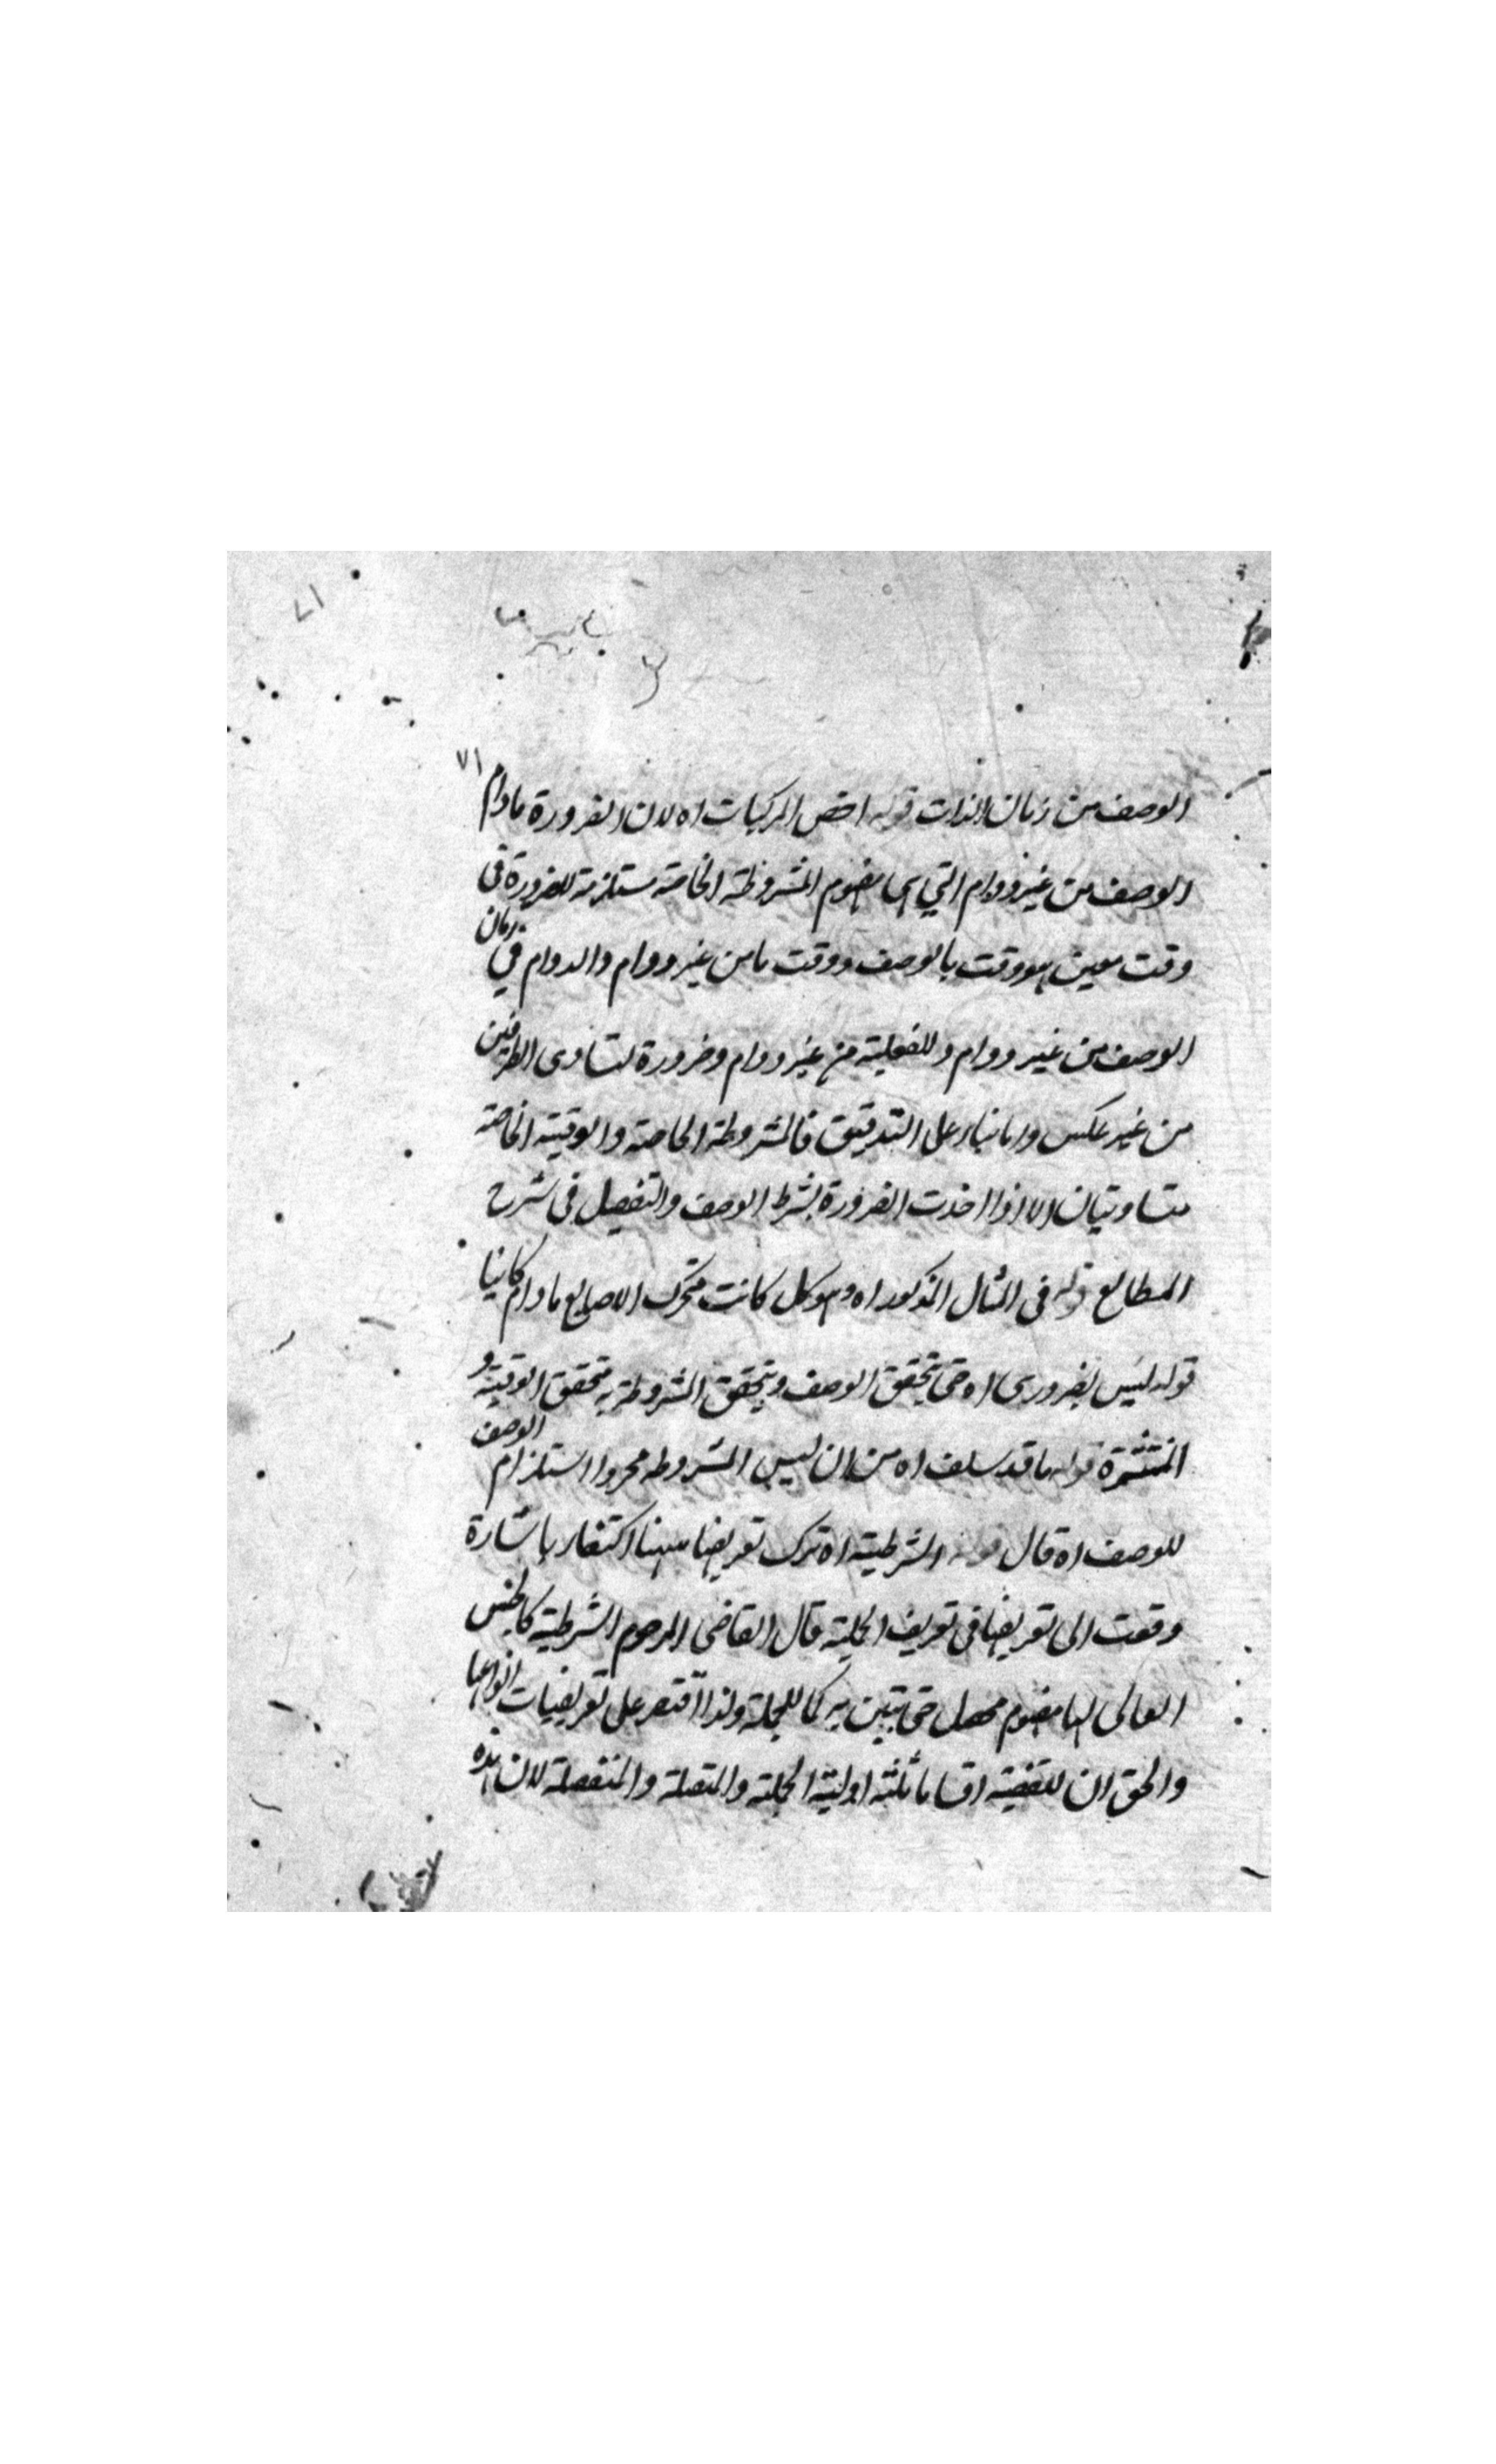 ٧١
الوصف من زمان الذات قوله اخص المركبات اه لان الضرورة مادام
الوصف من غير دوام التي هي مفهوم المشروطة الخاصة مستلزمة للضرورة في
وقت معين هو وقت بالوصف ووقت ما من غير دوام والدوام في زمان
الوصف من غير دوام وللفعلية من غير دوام وضرورة لتساوى الطرفين
من غير عكس واما بناء على التدقيق فالمشروطة الخاصة والوقتية الخاصة
متساويتان الا اذا اخذت الضرورة بشرط الوصف والتفصيل في شرح
المطالع قوله في المثال المذكور اه وهو كل كاتب متحرك الاصابع مادام كاتبا
قوله ليس بضرورى اه حتى يتحقق الوصف ويتحقق المشروطة به فتحقق الوقتية و
المنتشرة قوله ما قد سلف اه من ان ليس المشروطة مجرد استلزام الوصف
للوصف اه قال قوله الشرطية اه ترك تعريفها ههنا اكتفاء باشارة
وقعت الى تعريفها في تعريف الحملية قال القاضى المرحوم الشرطية كالجنس
العالى لها مفهوم محصل حتى يتبين به كما للحملية ولذا اقتصر على تعريفات انواعها
والحق ان للقضية اقساما ثلثة اولية الحملية والمتصلة والمنفصلة لان هذه